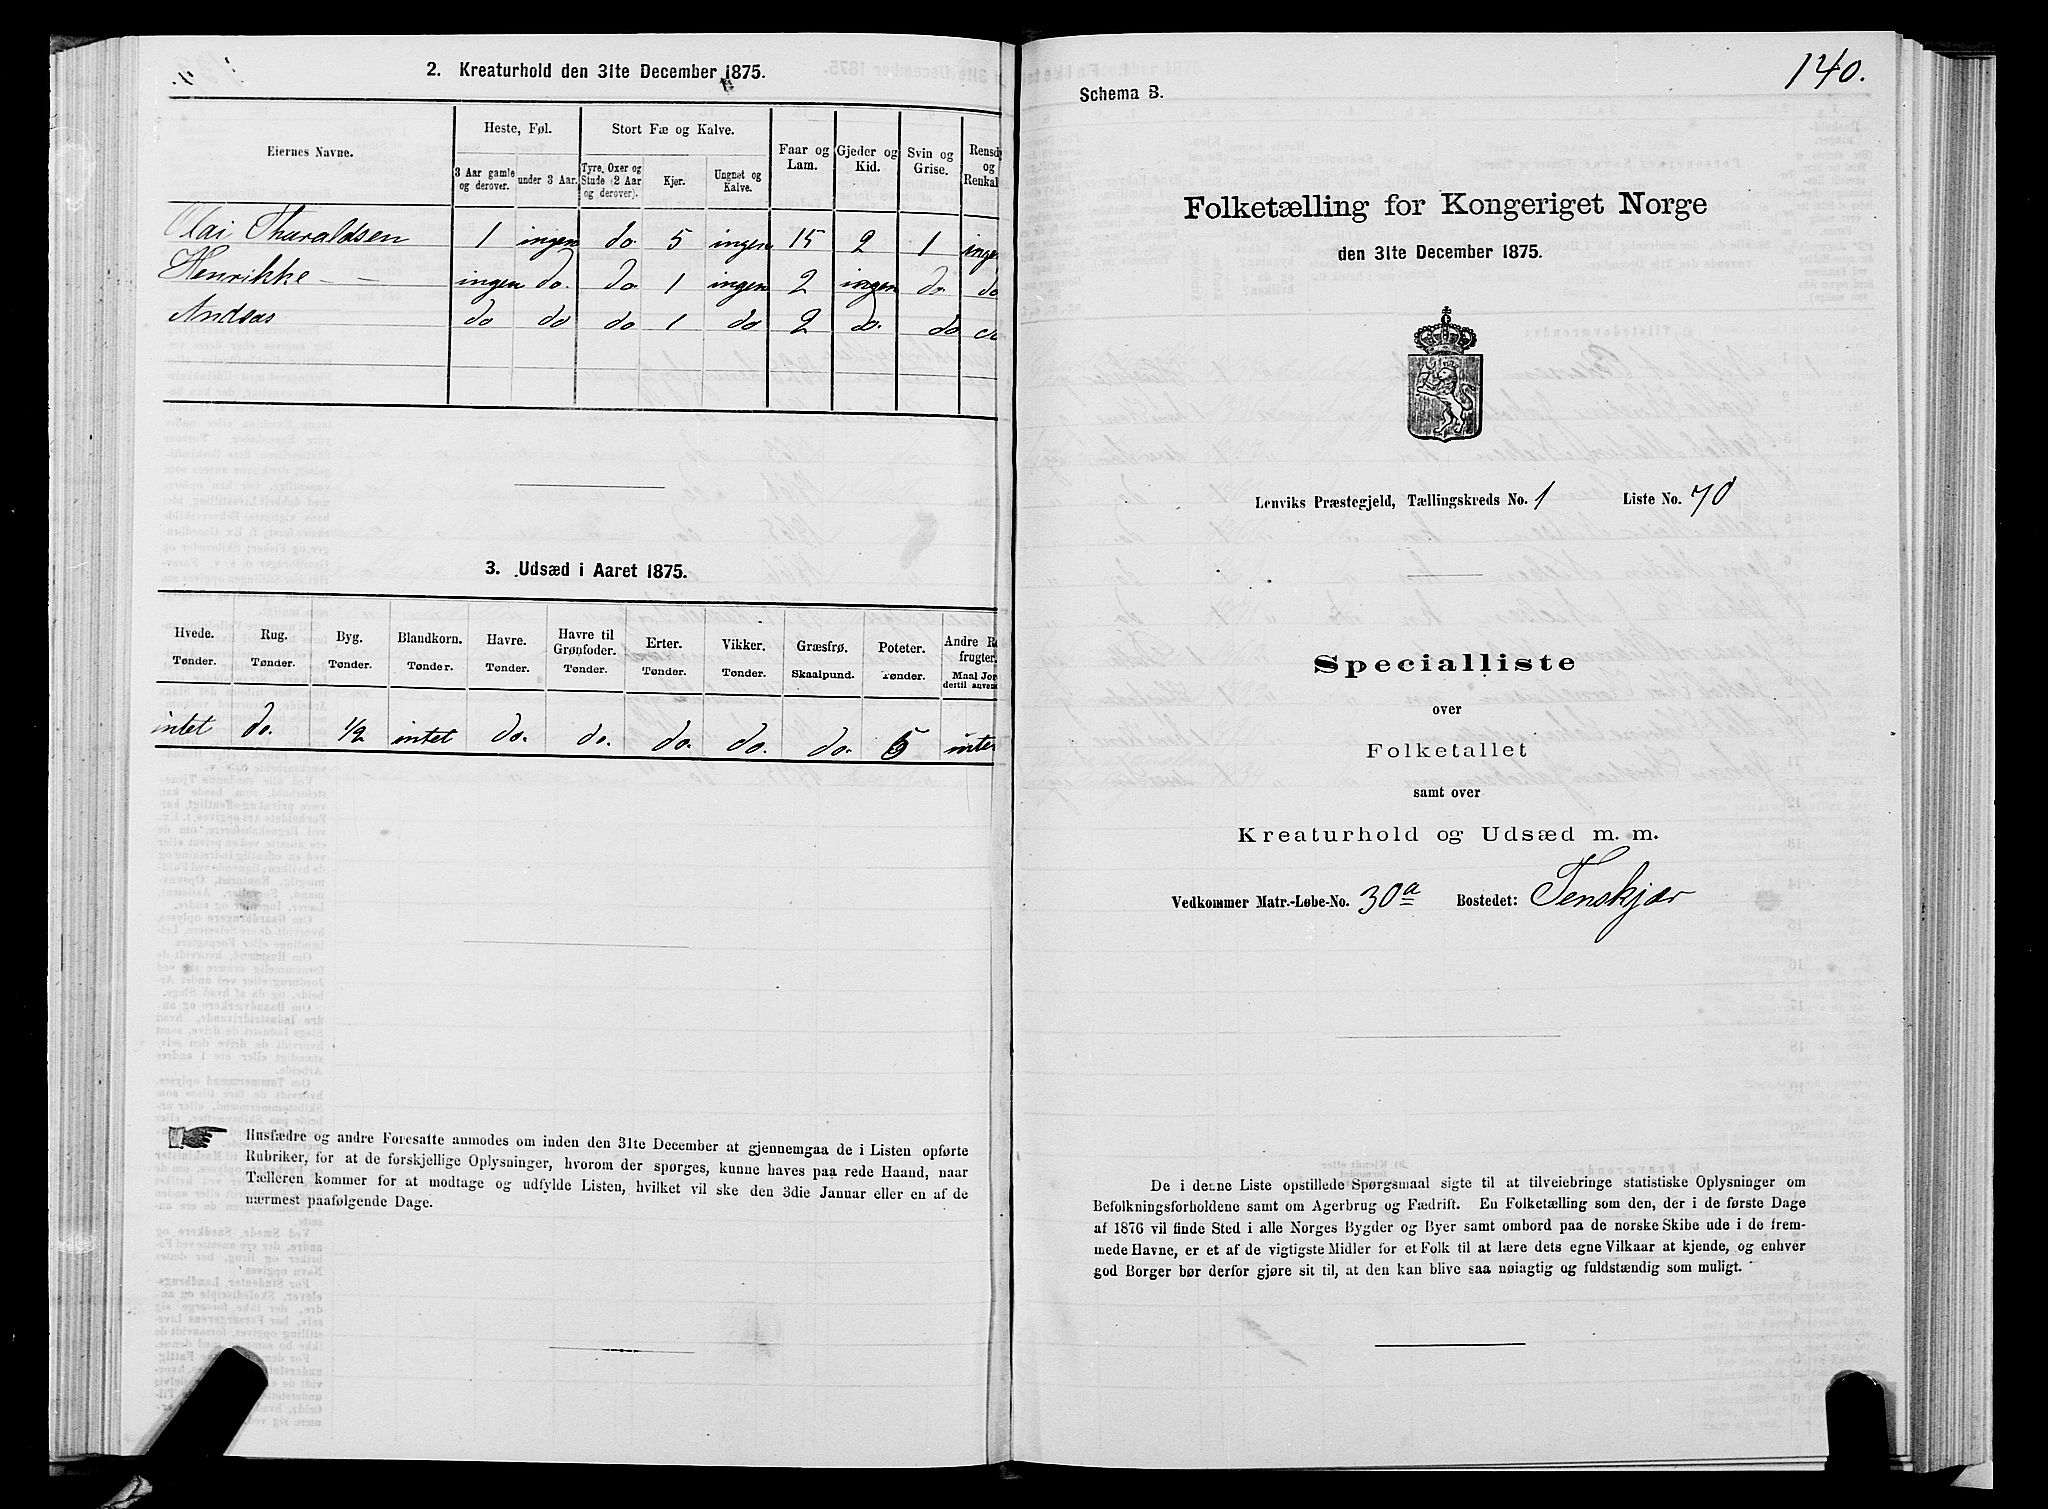 2. Kreaturhold den 31te December 1875.
Eiernes Navne.
Heste, Føl.
Stort Fæ og Kalve.
Faar og Lam.
Gjeder og Kid.
Svin og Grise.
Rensd
og
Renkal
3 Aar gamle og derover.
under 3 Aar.
Tyre, Oxer og Stude (2 Aar og derover).
Kjør.
Ungnøt og Kalve.
Olai Tharaldsen 1 ingen do. 5 ingen 15 2 1 ingen
Henrikke — ingen do. do 1 ingen 2 ingen do. do
Andsas do do do 1 do 2 do. do
3. Udsæd i Aaret 1875.
Hvede. Rug. Byg. Blandkorn. Havre. Havre til Grønfoder. Erter. Vikker. Græsfrø. Poteter. Andre R frugter.
Tønder. Tønder. Tønder. Tønder. Tønder. Tønder. Tønder. Tønder. Skaalpund. Tønder. Maal Jor dertil anven
intet do. 1/2 intet do. do. do. do. do. 5 inte
Husfædre og andre Foresatte anmodes om inden den 31te December at gjennemgaa de i Listen opførte
Rubriker, for at de forskjellige Oplysninger, hvorom der spørges, kunne haves paa rede Haand, naar
Tælleren kommer for at modtage og udfylde Listen, hvilket vil ske den 3die Januar eller en af de
nærmest paafølgende Dage.
140.
Schema B.
Folketælling for Kongeriget Norge
den 31te December 1875.
Lenviks Præstegjeld, Tællingskreds No. 1 Liste No. 70
Specialliste
over
Folketallet
samt over
Kreaturhold og Udsæd m. m.
Vedkommer Matr.-Løbe-No. 30a Bostedet: Tenskjær
De i denne Liste opstillede Spørgsmaal sigte til at tilveiebringe statistiske Oplysninger om
Befolkningsforholdene samt om Agerbrug og Fædrift. En Folketælling som den, der i de første Dage
af 1876 vil finde Sted i alle Norges Bygder og Byer samt ombord paa de norske Skibe ude i de frem-
mede Havne, er et af de vigtigste Midler for et Folk til at lære dets egne Vilkaar at kjende, og enhver
god Borger bør derfor gjøre sit til, at den kan blive saa nøiagtig og fuldstændig som muligt.